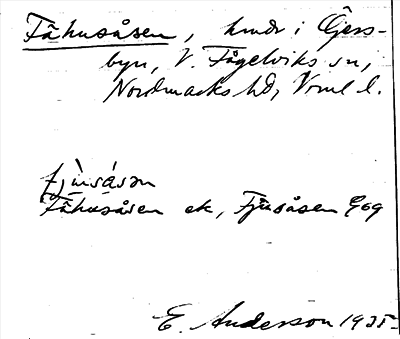 Fähusåsen, hmdr i Gjers-
byn, V. Fågelviks sn,
Nordmarks hd, Vrml l.
fjùsásən
Fähusåsen ek, Fjusåsen Gog
E. Anderson 1935